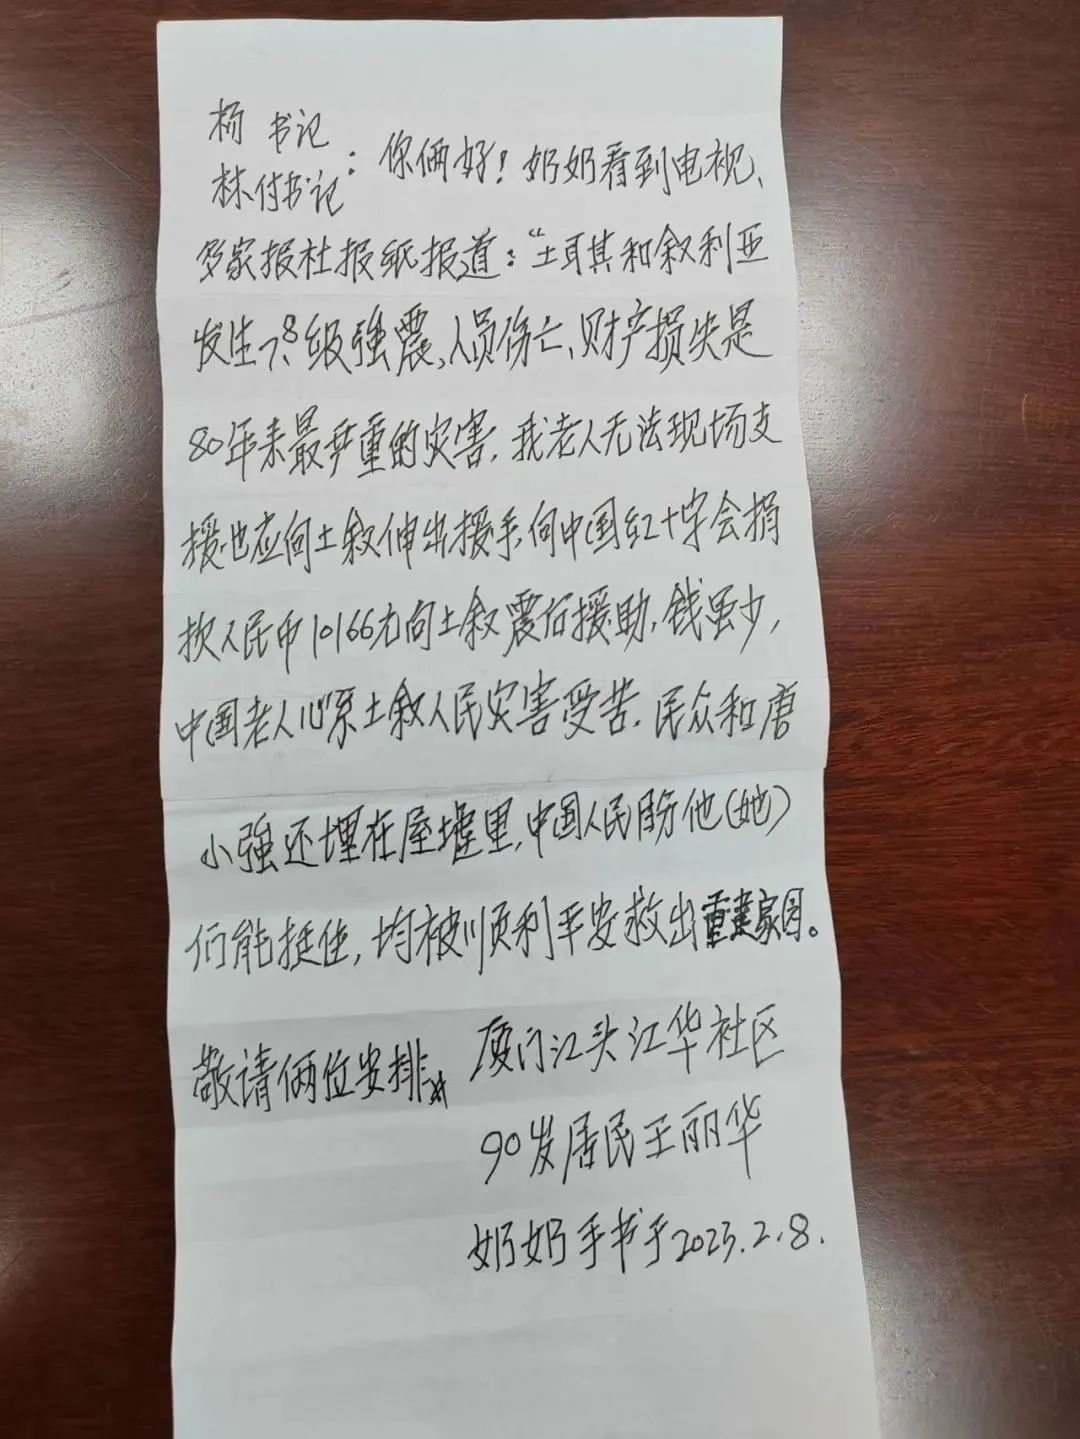 杨 书记
林付书记：你俩好！奶奶看到电视、
多家报社报纸报道：“土耳其和叙利亚
发生7.8级强震，人员伤亡、财产损失是
80年来最严重的灾害，我老人无法现场支
援也应向土叙伸出援手，向中国红十字会捐
款人民币10166元向土叙震后援助，钱虽少，
中国老人心系土叙人民灾害受苦。民众和唐
小强还埋在屋墟里，中国人民盼他（她）
们能挺住，均被顺利平安救出重建家园。
敬请俩位安排
厦门江头江华社区
90岁居民王丽华
奶奶手书于2023.2.8.